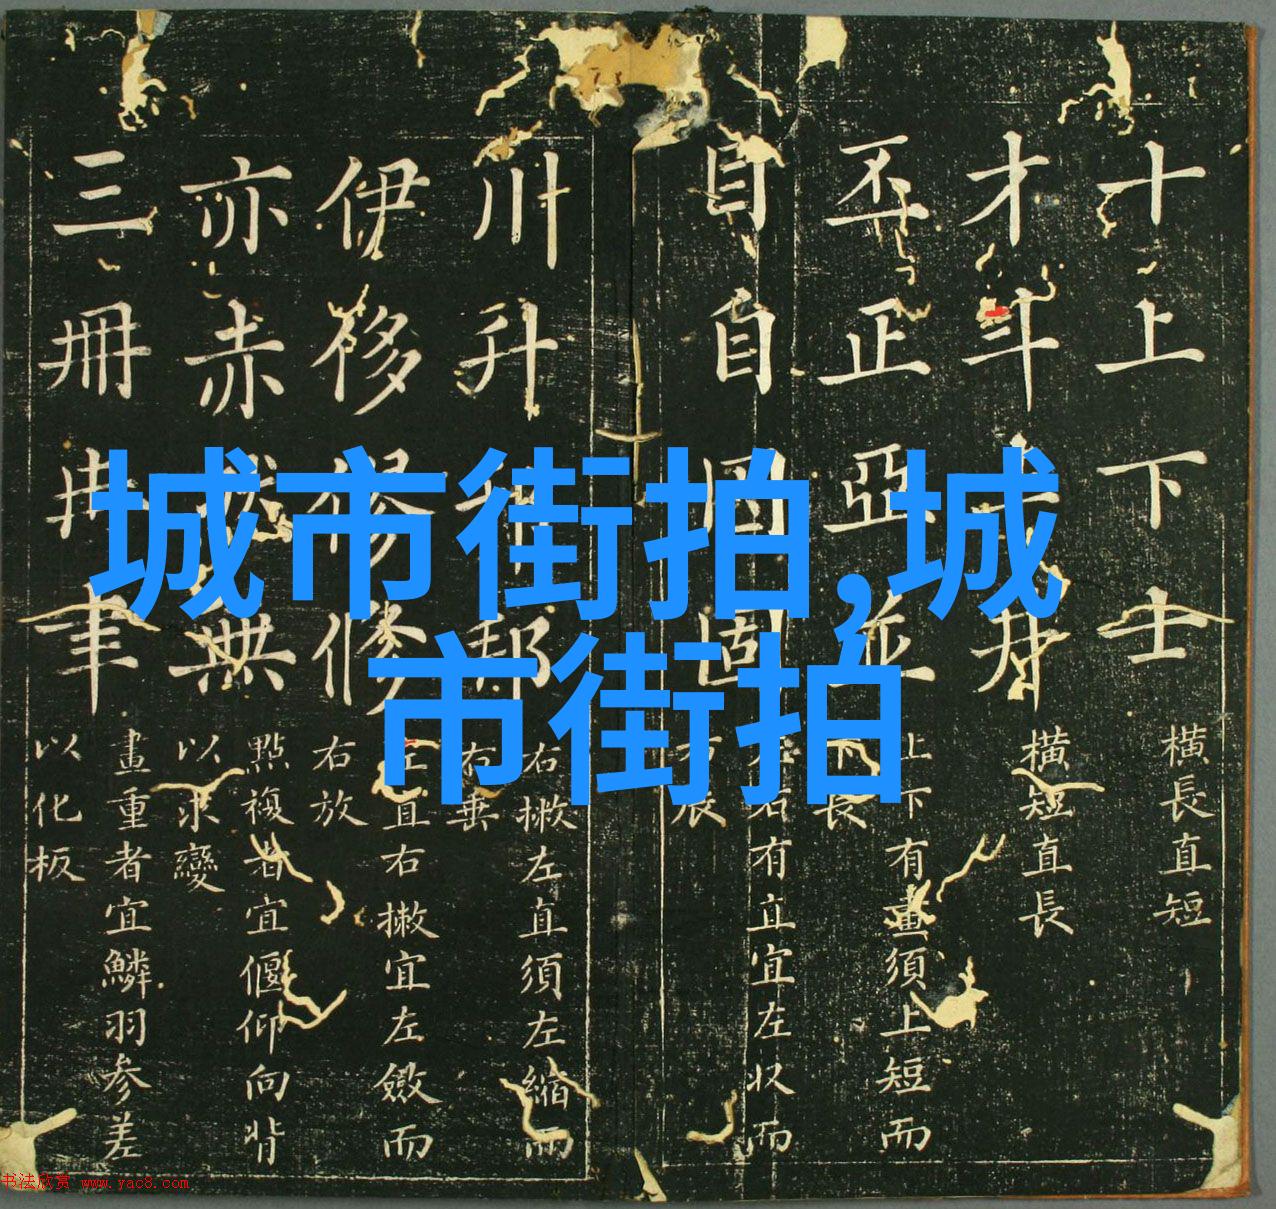 城市街拍,城
市街拍
十上下士
橫長直短
才斗
橫短直長
丕正亞並
上下有畫須上短而
下長
自自固
左右有直宜左收而
右展
川升邦
右撇左直須左縮而
右垂
伊移修
左直右撇宜左斂而
右放
亦赤無
點複者宜偃仰向背
以求變
三冊聿
畫重者宜鱗羽參差
以化板
书法欣赏 www.yac8.com